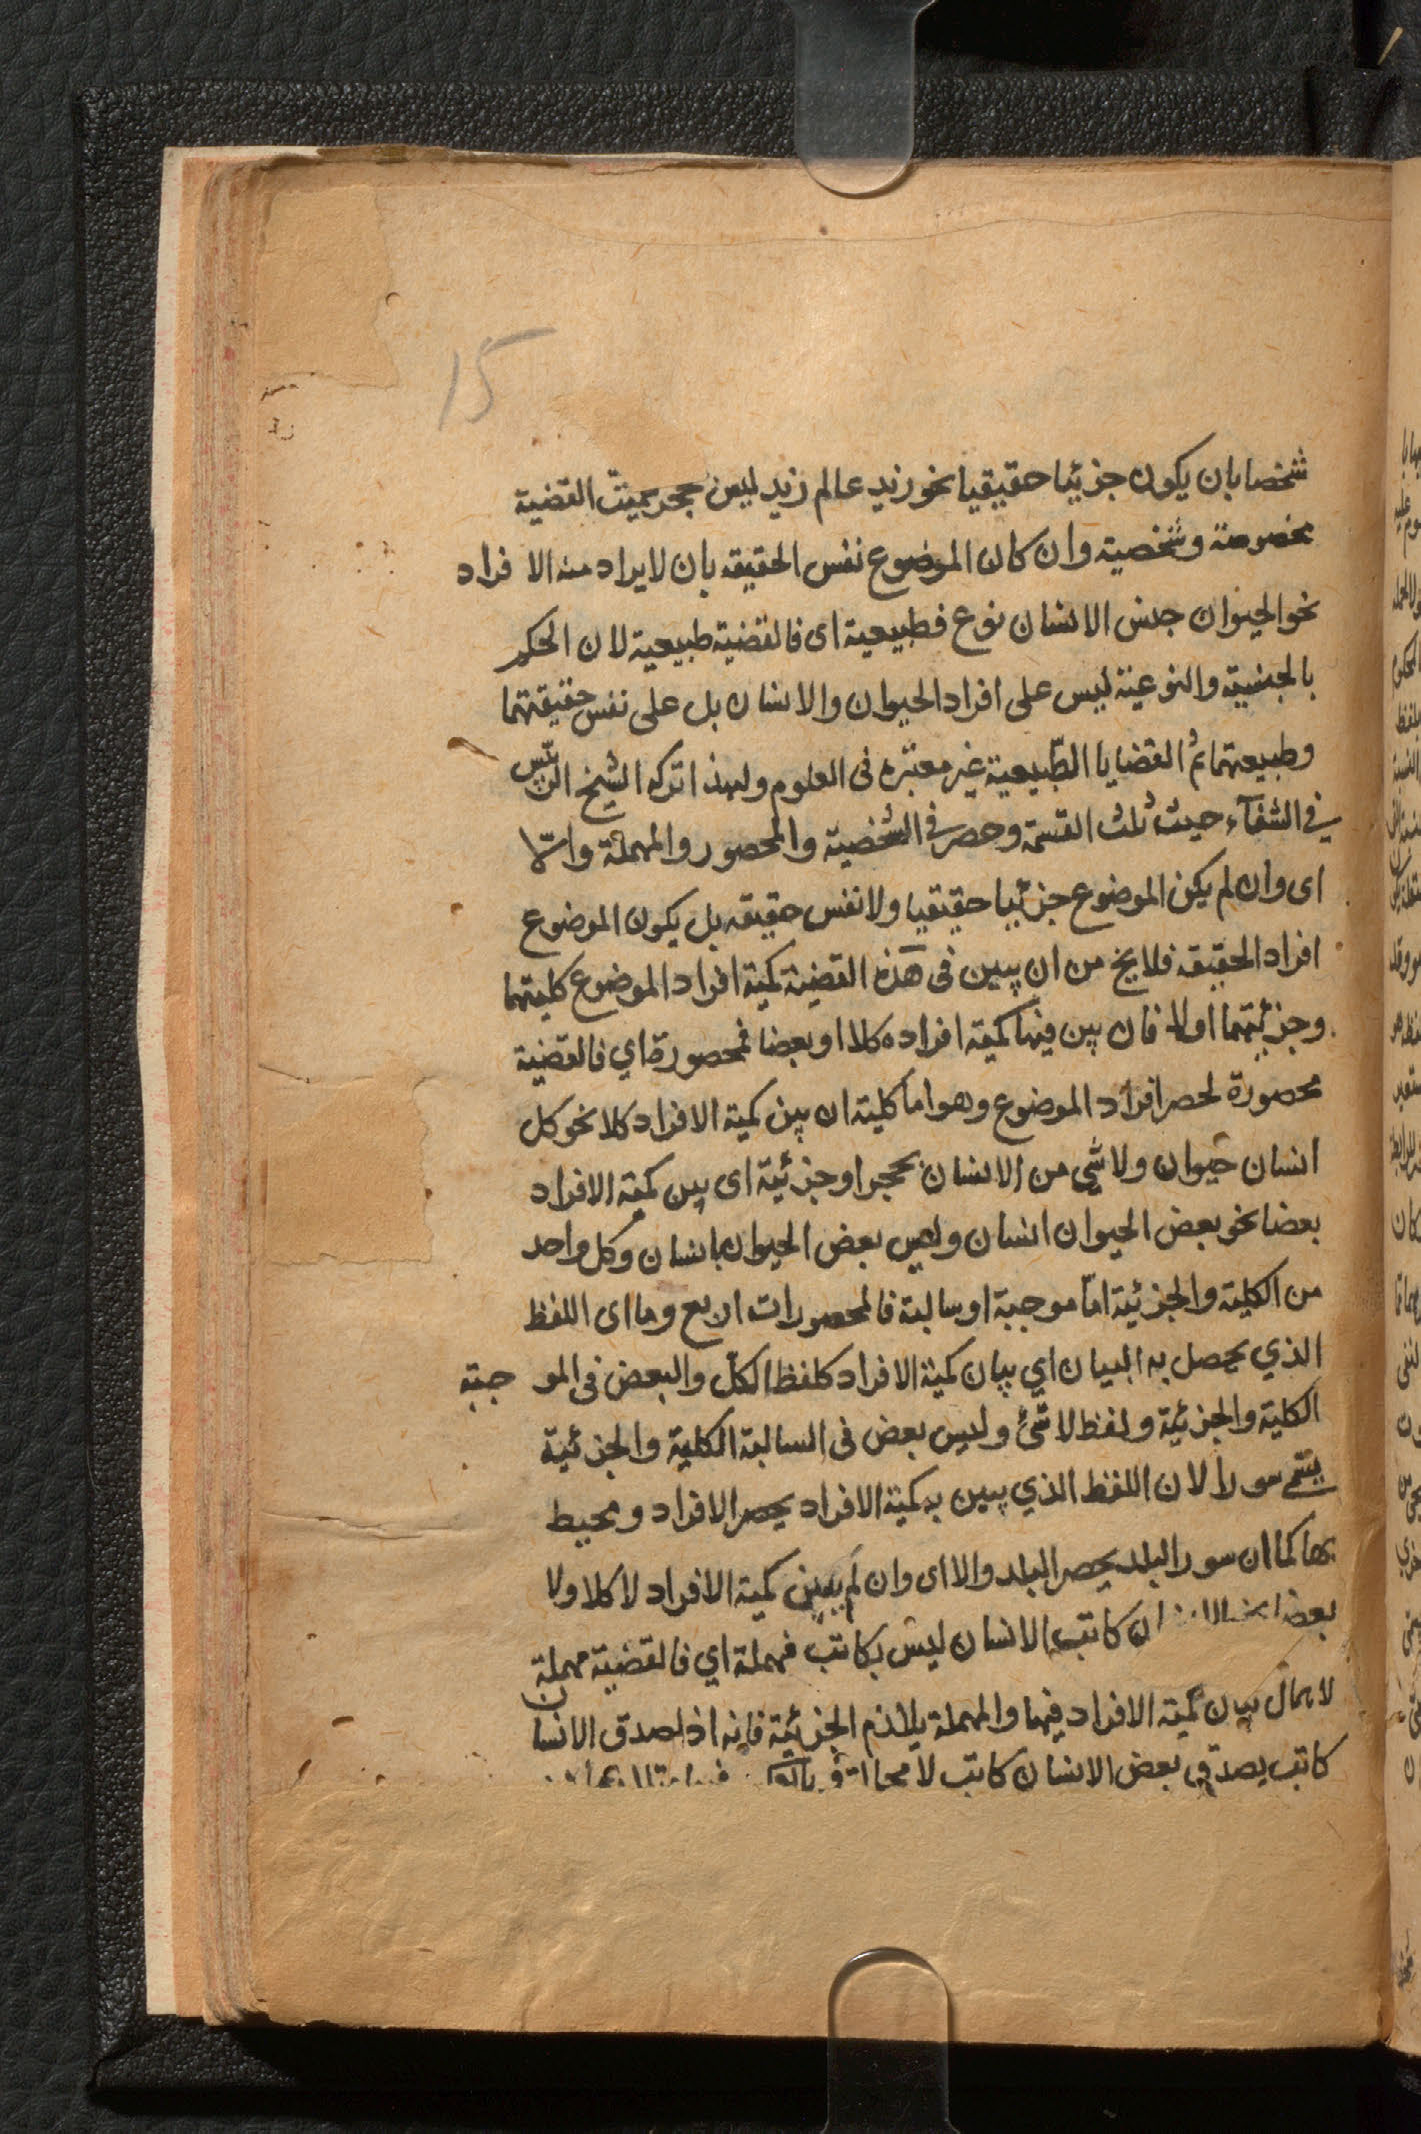 15
شخصا بان يكون جزئيا حقيقيا نحو زيد عالم زيد ليس بحجر سميت القضية
مخصوصة وشخصية وان كان الموضوع نفس الحقيقه بان لا يراد منه الا فراد
نحو الحيوان جنس الانسان نوع فطبيعية اى فالقضية طبيعية لان الحكم
بالجنسية والنوعية ليس على افراد الحيوان والانسان بل على نفس حقيقتهما
وطبيعتهما ثم القضايا الطّبيعية غير معتبره فى العلوم ولهذا تركه الشيخ الرئيس
في الشفآء حيث ثلث القسمة وحصر فى الشخصية والمحصور والمهملة والّا
اى وان لم يكن الموضوع جزئيا حقيقيا ولا نفس حقيقه بل يكون الموضوع
افراد الحقيقه فلا يخ من ان يبين فى هذه القضية كمية افراد الموضوع كليتها
وجزئيتها اولا فان بين فيها كمية افراده كلا او بعضا فمحصورة اي فالقضية
محصورة لحصر افراد الموضوع وهو اما كلية ان بين كمية الافراد كلا نحو كل
انسان حيوان ولا شي من الانسان بحجر او جزئية اى بين كمية الافراد
بعضا نحو بعض الحيوان انسان وليس بعض الحيوان بانسان وكل واحد
من الكلية والجزئية امّا موجبة او سالبة فالمحصورات اربع وما اى اللفظ
الذي يحصل به البيان اي بيان كمية الافراد كلفظ الكل والبعض فى المو جبة
الكلية والجزئية ولفظ لا شئ وليس بعض فى السالبة الكلية والجزئية
يسمى سورا لان اللفظ الذي يبين به كمية الافراد يحصر الافراد ومحيط
بها كما ان سور البلد يحصر البلد والا اى وان لم يبين كمية الافراد لا كلا ولا
بعضا كاتب الانسان ليس بكاتب فمهملة اي فالقضية مهملة
لاهمال بيان كمية الافراد فيها والمهملة يلازم الجزئية فانه اذا صدق الانسان
كاتب يصدق بعض الانسان كاتب لا محالة